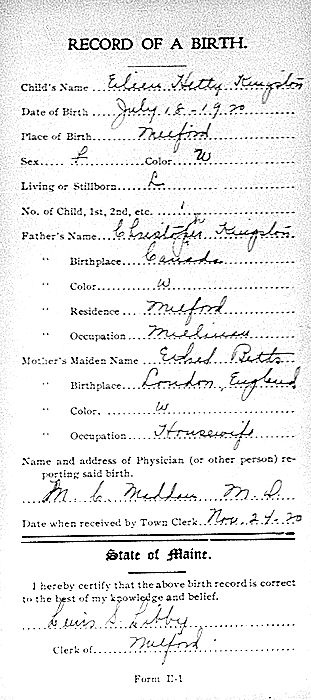 RECORD OF A BIRTH.
Child's Name Eileen Hetty Kingston
Date of Birth July 18 - 1920
Place of Birth Milford
Sex F Color W
Living or Stillborn L
No. of Child, 1st, 2nd, etc. 1
Father's Name Christopher Kingston
" Birthplace Canada
" Color W
" Residence Milford
" Occupation Millman
Mother's Maiden Name Ethel Betts
" Birthplace London England
" Color W
" Occupation Housewife
Name and address of Physician (or other person) re-
porting said birth.
M C Madden M D
Date when received by Town Clerk Nov. 24. 20
State of Maine.
I hereby certify that the above birth record is correct
to the best of my knowledge and belief.
Lewis S. Libby
Clerk of Milford
Form E-1